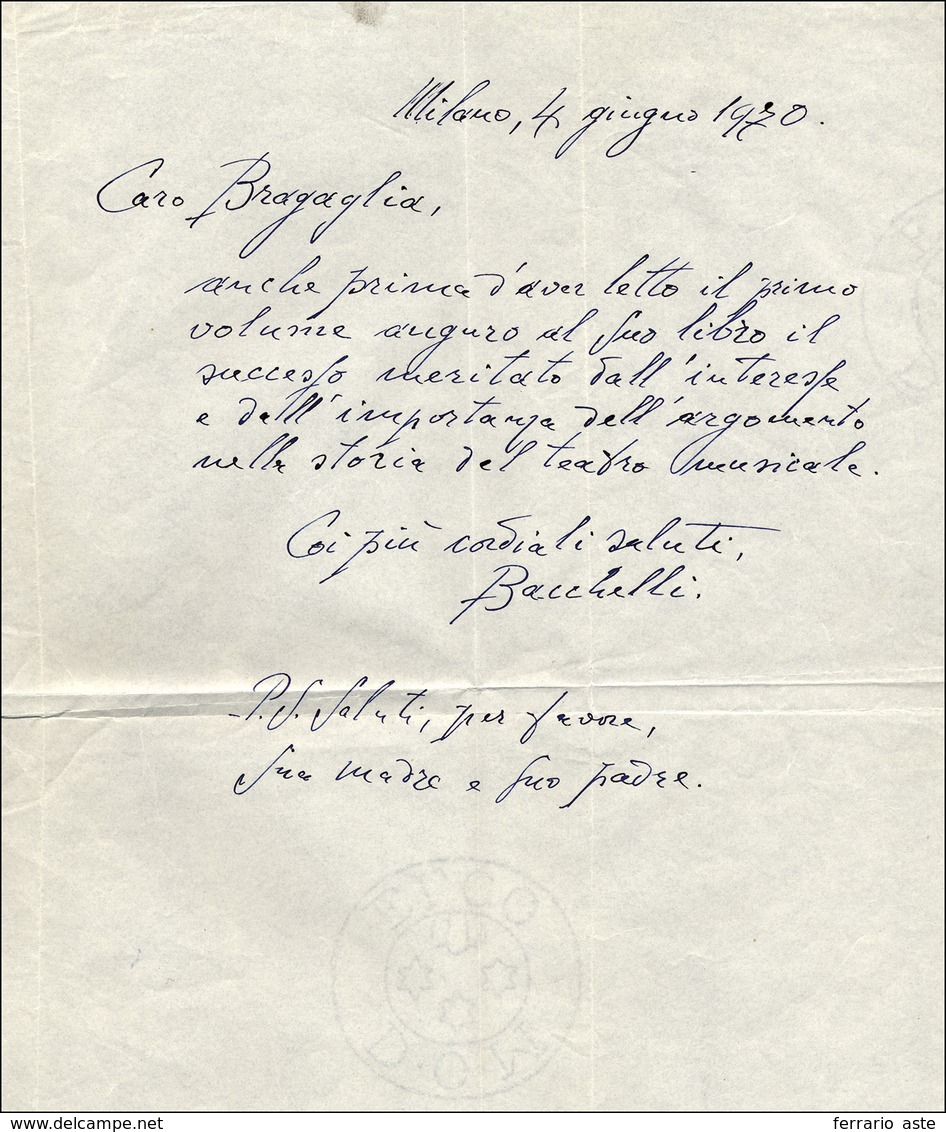 Milano, 4 giugno 1970.
Caro Bragaglia,
anche prima d'aver letto il primo
volume auguro al Suo libro il
successo meritato dall'interesse
e dall'importanza dell'argomento
nella storia del teatro musicale.
Coi più cordiali saluti,
Bacchelli.
P.S. Saluti, per favore,
Sua madre e Suo padre.
www.delcampe.net
ferrario aste